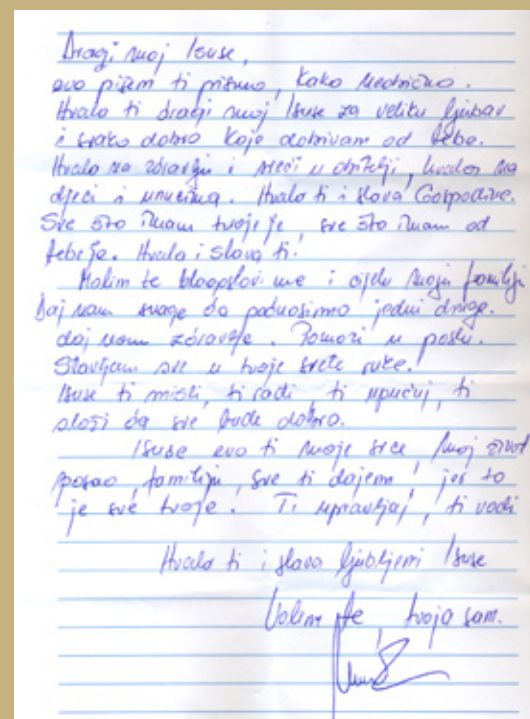 Dragi moj Isuse,
evo pišem ti pismo, kako
Hvala ti dragi moj Isuse za veliku ljubav
i svako dobro koje dobivam od tebe.
Hvala na zdravlju i sreći u obitelji, hvala na
djeci i unucima. Hvala ti i slava Gospodine.
Sve što imam tvoje je, sve što imam od
tebe je. Hvala i slava ti!
Molim te blagoslovi me i cijelu moju familiju
Daj nam snage da podnosimo jedni druge.
daj nam zdravlje. Pomozi u poslu.
Stavljam sve u tvoje svete ruke.
Isuse ti misli, ti radi ti upućuj, ti
složi da sve bude dobro.
Isuse evo ti moje srce, moj život
posao, familiju, sve ti dajem, jer to
je sve tvoje. Ti upravljaj, ti vodi
Hvala ti i slava ljubljeni Isuse
Volim te, tvoja sam.